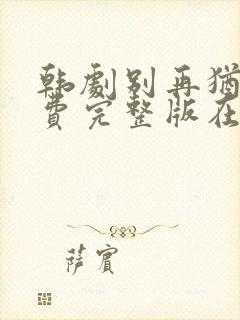 韩劇别再猶
費完整版在
萨賓